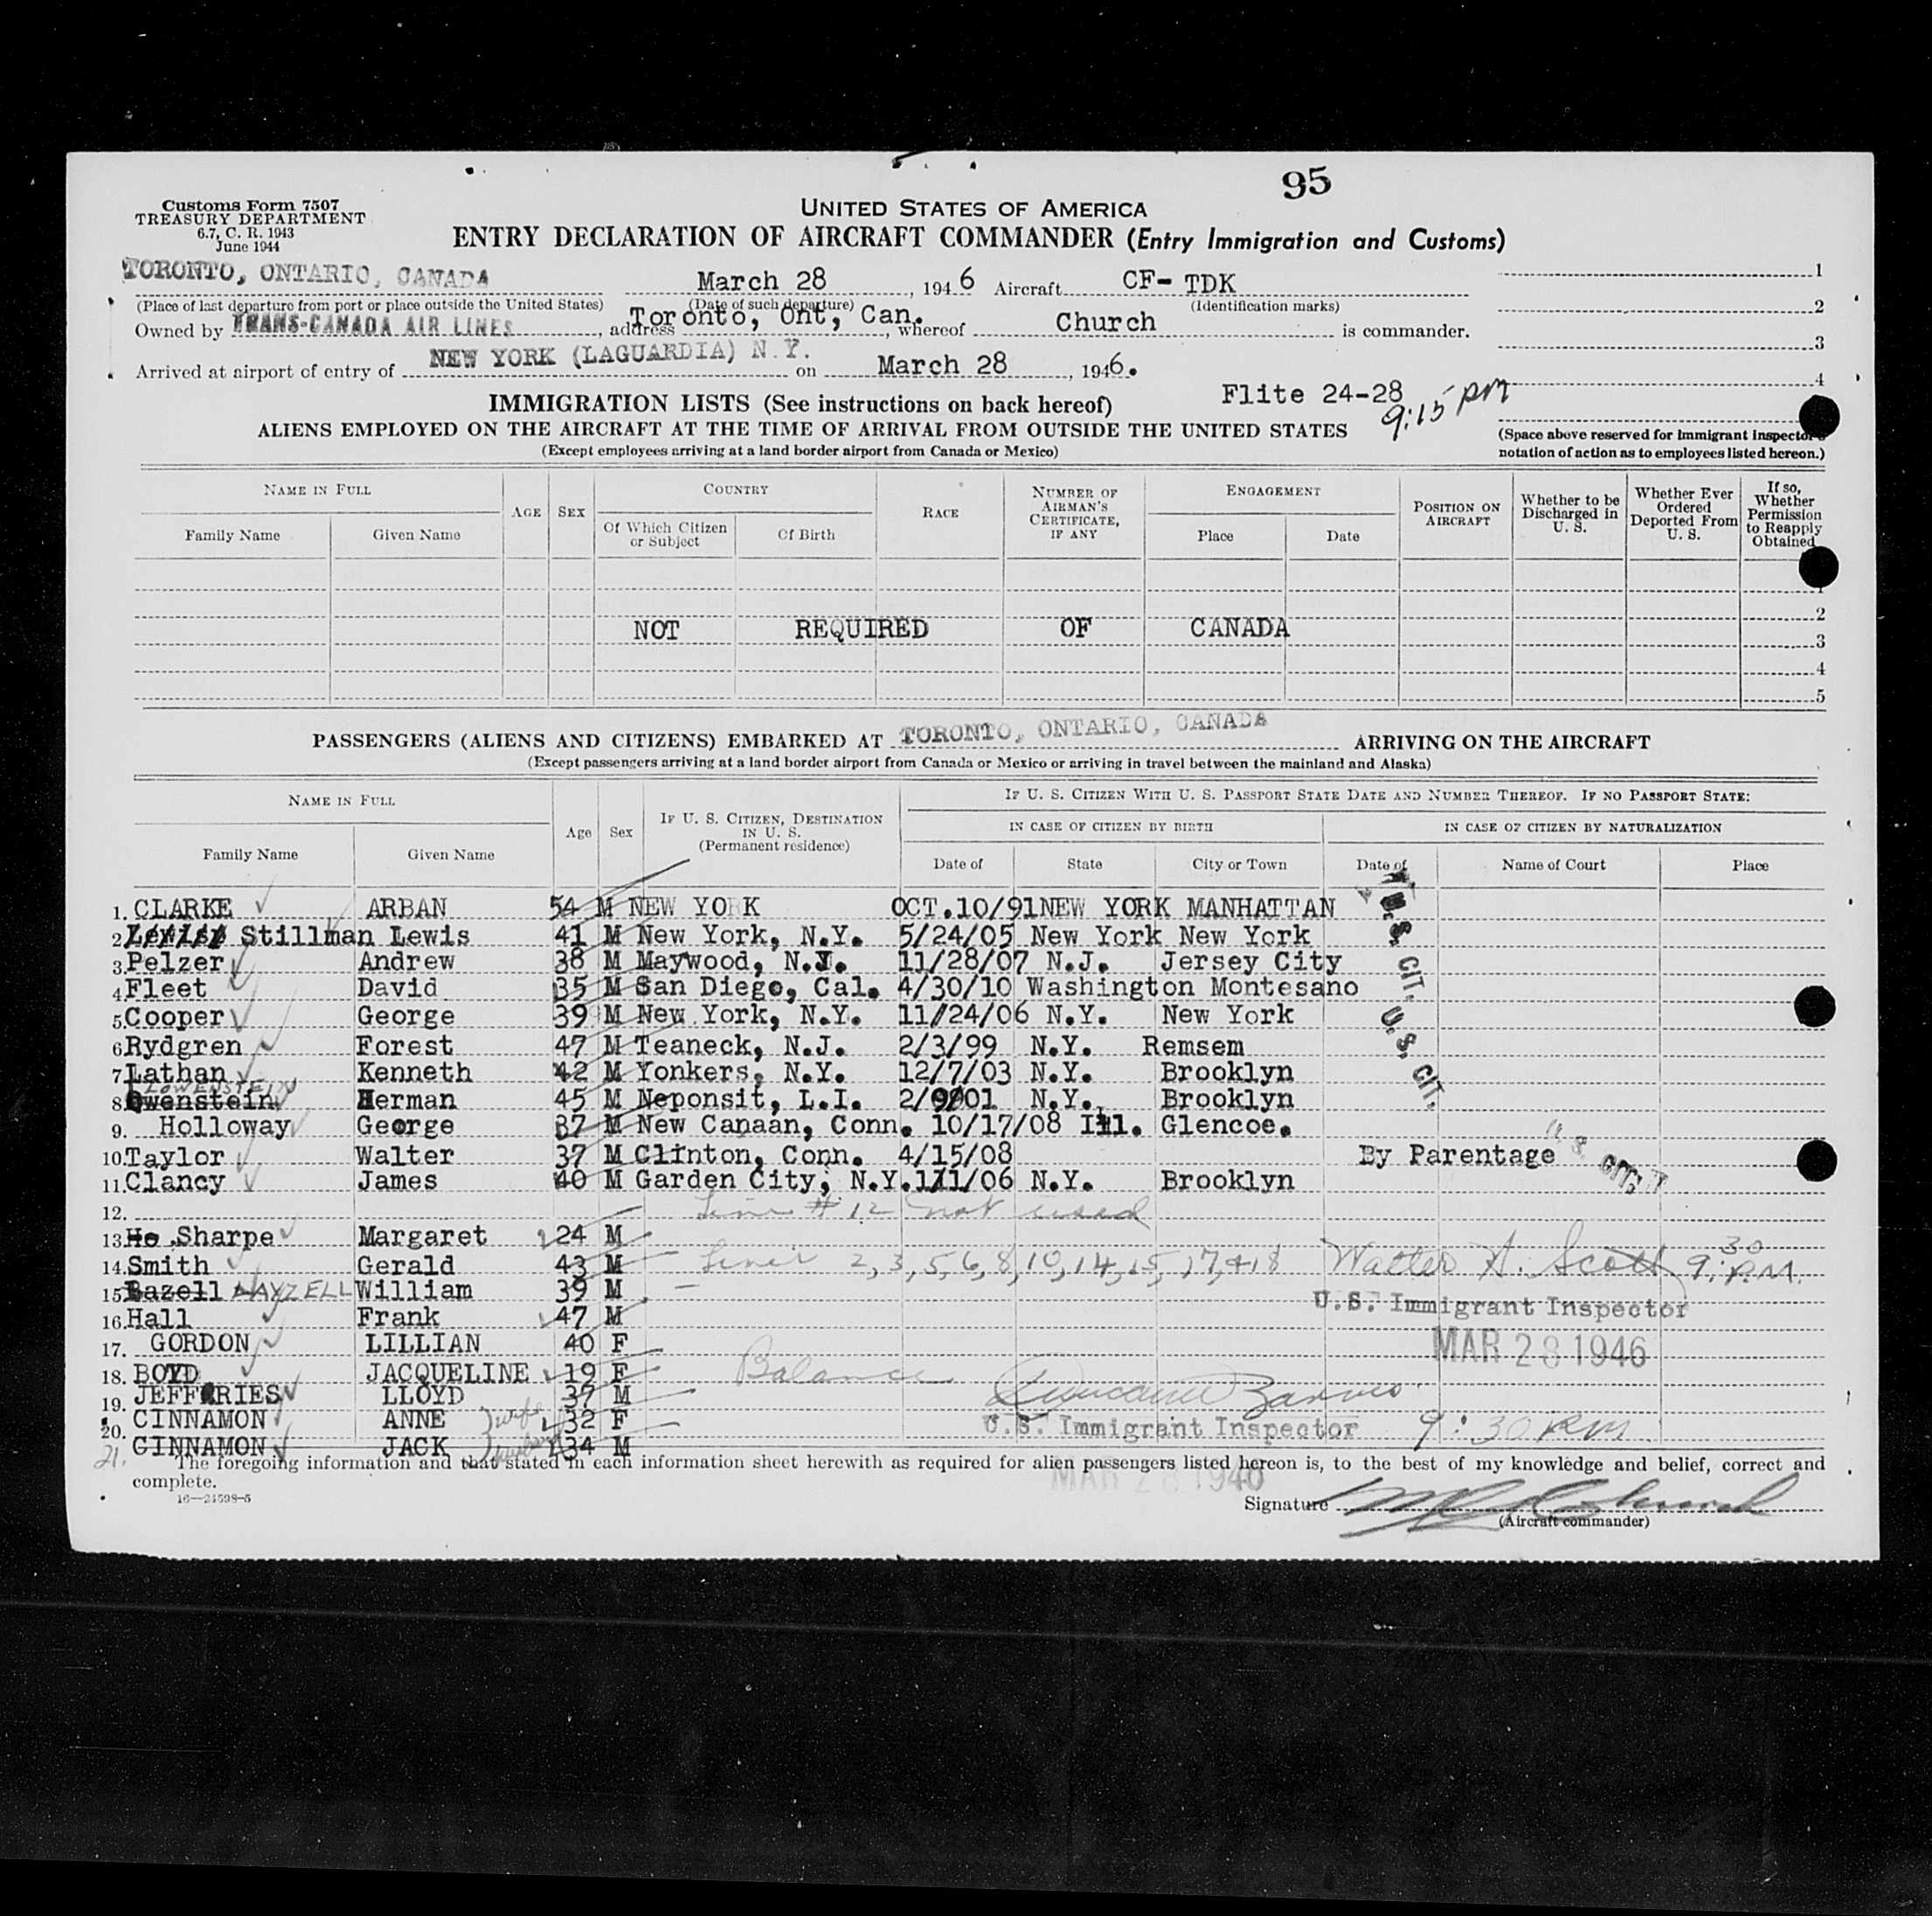 95
Customs Form 7507
TREASURY DEPARTMENT
6.7, C. R. 1943
June 1944
UNITED STATES OF AMERICA
ENTRY DECLARATION OF AIRCRAFT COMMANDER (Entry Immigration and Customs)
TORONTO, ONTARIO, CANADA March 28, 1946 Aircraft CF- TDK 1
(Place of last departure from port or place outside the United States) (Date of such departure) (Identification marks) 2
Owned by TRANS-CANADA AIR LINES, address Toronto, Ont, Can., whereof Church is commander. 3
Arrived at airport of entry of NEW YORK (LAGUARDIA) N.Y. on March 28, 1946. 4
Flite 24-28 9:15 PM
IMMIGRATION LISTS (See instructions on back hereof)
ALIENS EMPLOYED ON THE AIRCRAFT AT THE TIME OF ARRIVAL FROM OUTSIDE THE UNITED STATES
(Except employees arriving at a land border airport from Canada or Mexico)
(Space above reserved for Immigrant Inspector's
notation of action as to employees listed hereon.)
NAME IN FULL AGE SEX COUNTRY RACE NUMBER OF AIRMAN'S CERTIFICATE, IF ANY ENGAGEMENT POSITION ON AIRCRAFT Whether to be Discharged in U. S. Whether Ever Ordered Deported From U. S. If so, Whether Permission to Reapply Obtained
Family Name Given Name Of Which Citizen or Subject Of Birth Place Date
1
2
NOT REQUIRED OF CANADA
3
4
5
PASSENGERS (ALIENS AND CITIZENS) EMBARKED AT TORONTO, ONTARIO, CANADA ARRIVING ON THE AIRCRAFT
(Except passengers arriving at a land border airport from Canada or Mexico or arriving in travel between the mainland and Alaska)
NAME IN FULL Age Sex IF U. S. CITIZEN, DESTINATION IN U. S. (Permanent residence) IF U. S. CITIZEN WITH U. S. PASSPORT STATE DATE AND NUMBER THEREOF. IF NO PASSPORT STATE:
IN CASE OF CITIZEN BY BIRTH IN CASE OF CITIZEN BY NATURALIZATION
Family Name Given Name Date of State City or Town Date of Name of Court Place
1. CLARKE ARBAN 54 M NEW YORK OCT.10/91 NEW YORK MANHATTAN
2. Stillman Lewis 41 M New York, N.Y. 5/24/05 New York New York
3. Pelzer Andrew 38 M Maywood, N.J. 11/28/07 N.J. Jersey City
4. Fleet David 35 M San Diego, Cal. 4/30/10 Washington Montesano
5. Cooper George 39 M New York, N.Y. 11/24/06 N.Y. New York
6. Rydgren Forest 47 M Teaneck, N.J. 2/3/99 N.Y. Remsem
7. Lathan Kenneth 42 M Yonkers, N.Y. 12/7/03 N.Y. Brooklyn
LOWENSTEIN
8. Owenstein Herman 45 M Neponsit, L.I. 2/9/01 N.Y. Brooklyn
9. Holloway George 37 M New Canaan, Conn. 10/17/08 Ill. Glencoe.
10. Taylor Walter 37 M Clinton, Conn. 4/15/08 By Parentage
11. Clancy James 40 M Garden City, N.Y. 1/1/06 N.Y. Brooklyn
U.S. CIT.
U.S. CIT.
U.S. CIT.
12. Line # 12 not used
13. Ho Sharpe Margaret 24 M
14. Smith Gerald 43 M Lines 2, 3, 5, 6, 8, 10, 14, 15, 17, + 18 Walter A. Scott 9:30 P.M.
15. Bazell BAYZELL William 39 M
U.S. Immigrant Inspector
16. Hall Frank 47 M
17. GORDON LILLIAN 40 F
MAR 28 1946
18. BOYD JACQUELINE 19 F Balance
19. JEFFRIES LLOYD 37 M
20. CINNAMON ANNE wife 32 F U.S. Immigrant Inspector 9:30 PM
21. CINNAMON JACK husband 34 M
The foregoing information and that stated in each information sheet herewith as required for alien passengers listed hereon is, to the best of my knowledge and belief, correct and
complete.
MAR 28 1946
16—24598-5
Signature
(Aircraft commander)